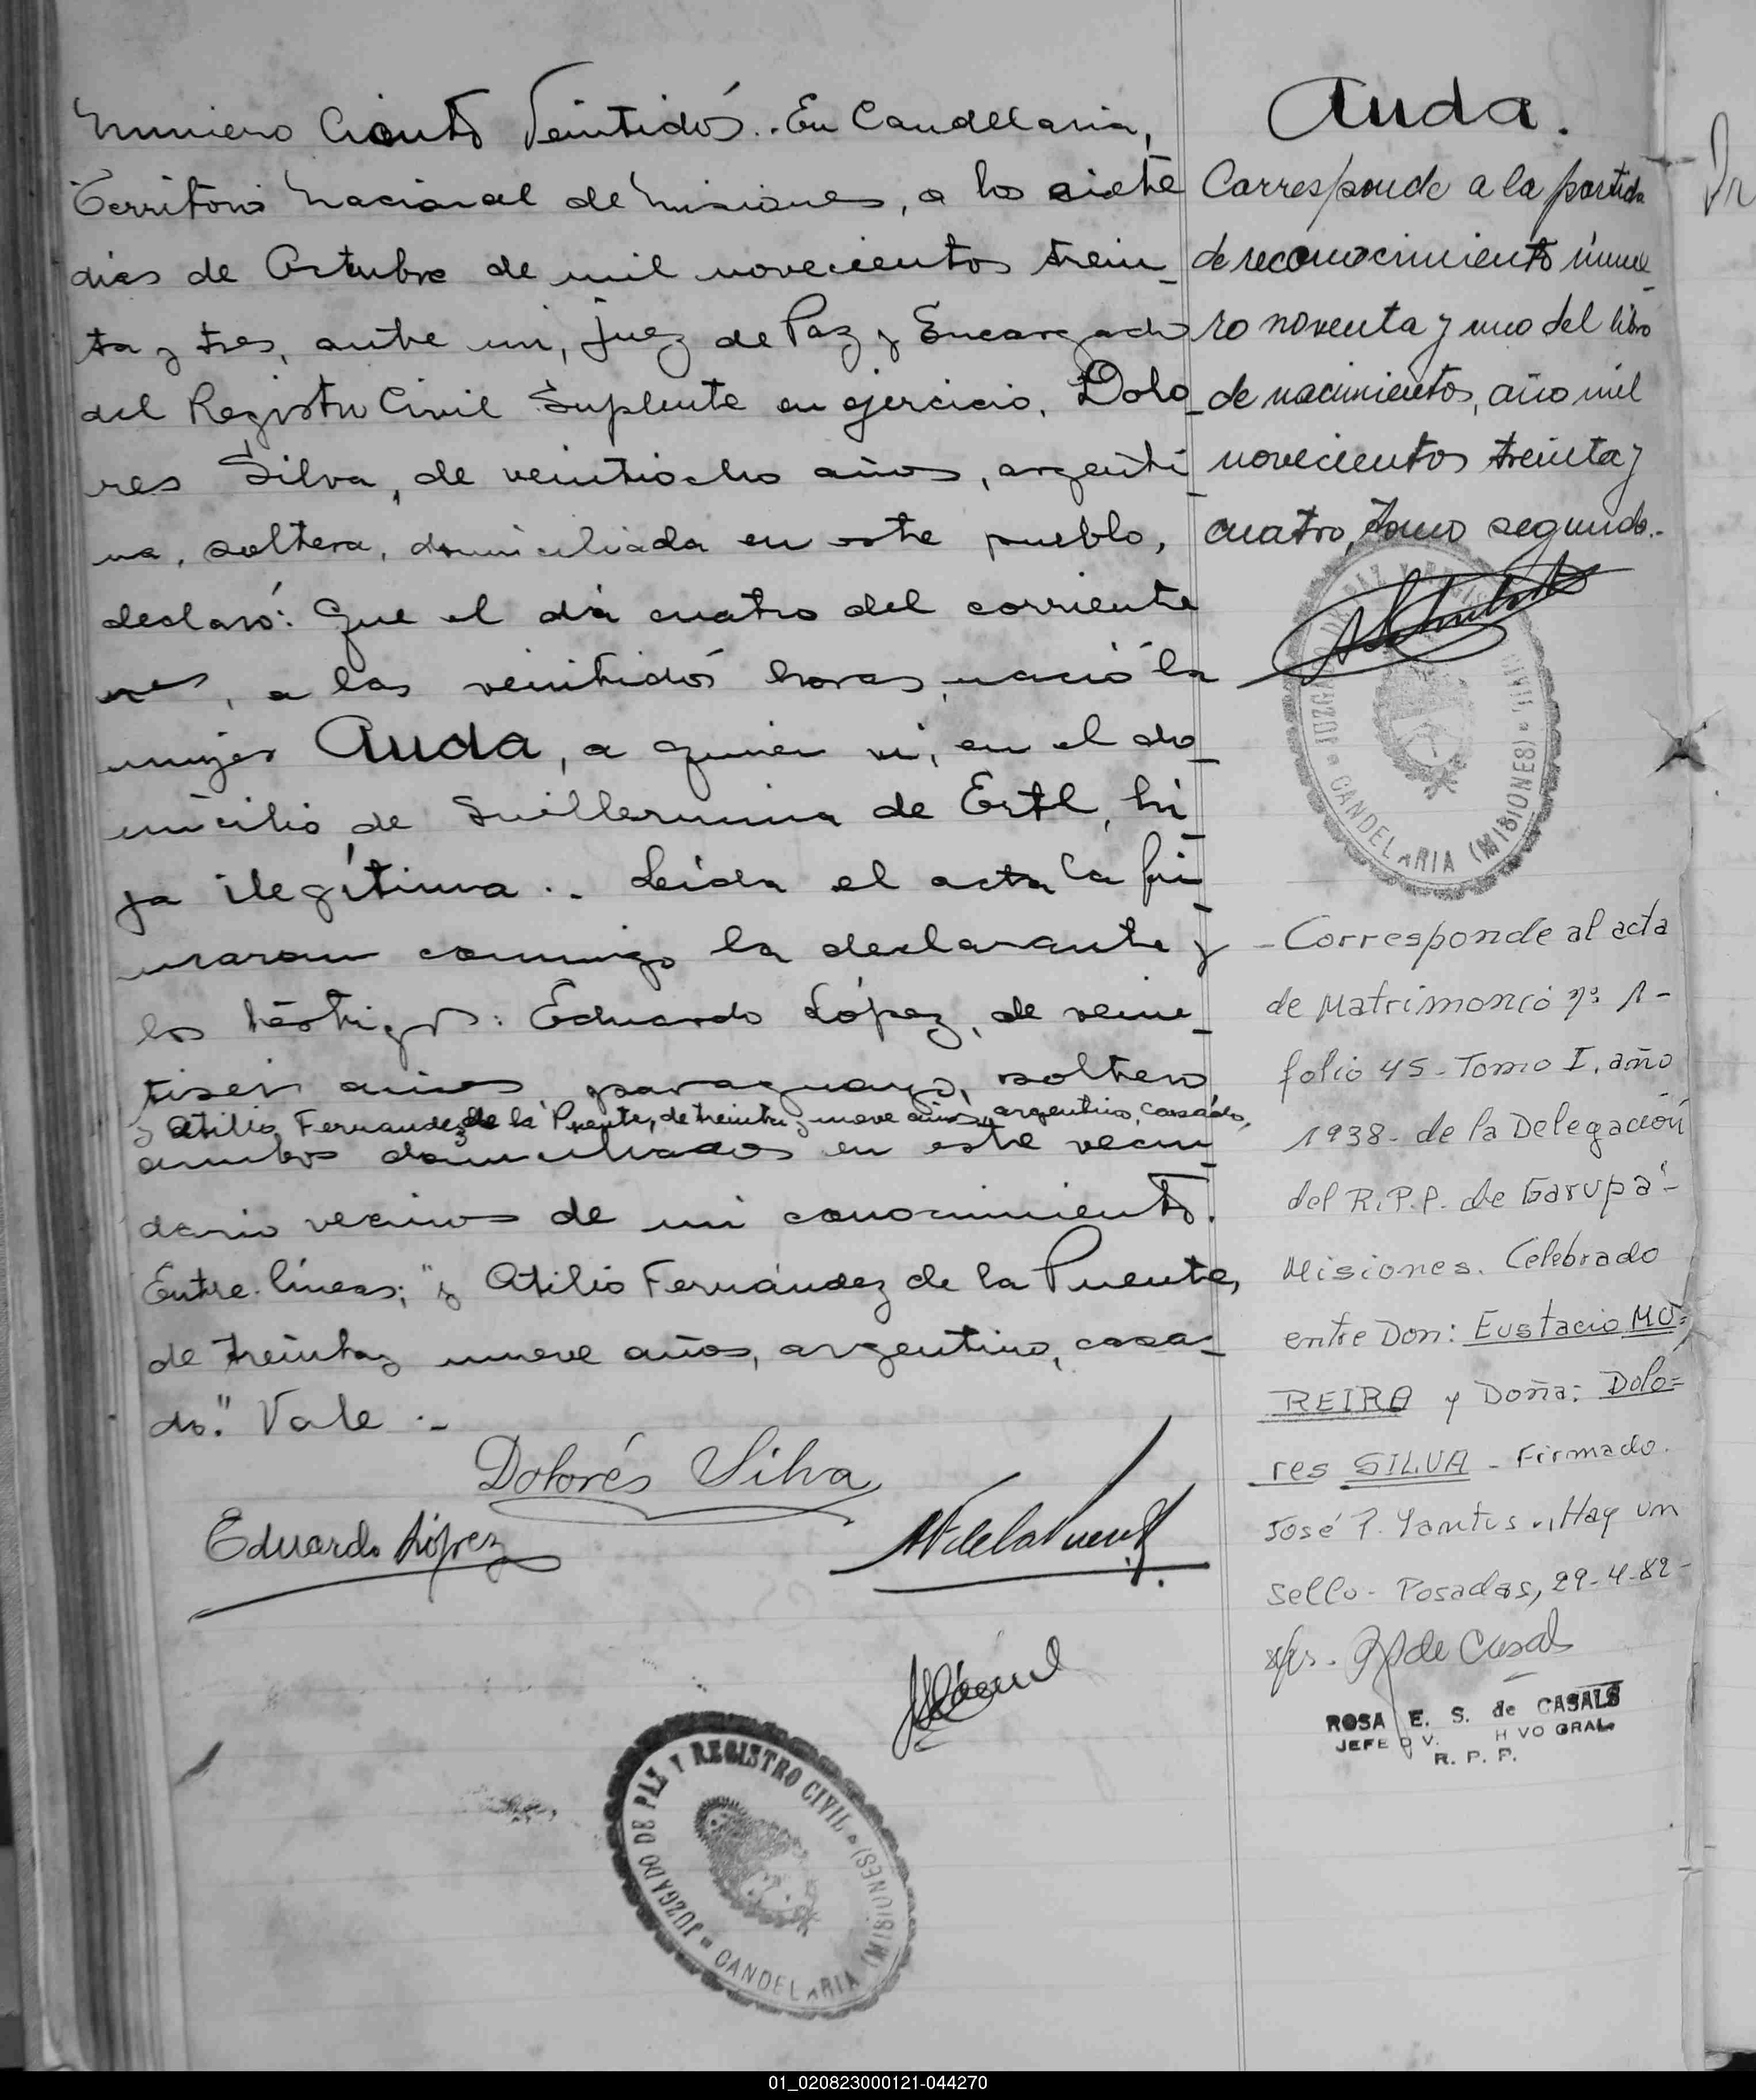 Numero Ciento Veintidós.. En Candelaria,
Territorio Nacional de Misiones, a los siete
dias de Octubre de mil novecientos trein_
ta y tres, ante mi, Juez de Paz y Encargado
del Registro Civil Suplente en ejercicio, Dolo_
res Silva, de veintiocho años, argenti_
na, soltera, domiciliada en este pueblo,
declaró: Que el día cuatro del corriente
mes, a las veintidós horas, nació la
mujer Auda, a quien vi, en el do_
micilio de Guillermina de Ertl, hi_
ja ilegítima .. Leída el acta la fir_
maron conmigo la declarante y
los testigos: Eduardo López, de vein_
tiseis años, paraguayo, soltero
y Atilio Fernandez de la Puente, de treinta y nueve años, argentino, casado,
ambos domiciliados en este vecin_
dario vecinos de mi conocimiento.
Entre líneas; "y Atilio Fernández de la Puente,
de treinta y nueve años, argentino, casa_
do." Vale .-
Dolorés Silva
Eduardo López
AF de la Puente
JUZGADO DE PAZ Y REGISTRO CIVIL
CANDELARIA (MISIONES)
Auda.
Corresponde a la partida
de reconocimiento núme_
ro noventa y uno del libro
de nacimientos, año mil
novecientos treinta y
cuatro, tomo segundo.-
JUZGADO DE PAZ Y REGISTRO CIVIL
CANDELARIA (MISIONES)
- Corresponde al acta
de Matrimonio nº 1-
folio 45 - Tomo I, año
1938 - de la Delegación
del R.P.P. de Garupá -
Misiones. Celebrado
entre Don: Eustacio MO=
REIRA y Doña: Dolo=
res SILVA - Firmado.
José P. .. Hay un
Sello - Posadas, 29-4-82-
de Casals
ROSA E. S. de CASALS
JEFE D V. H VO GRAL.
R. P. P.
01_020823000121-044270